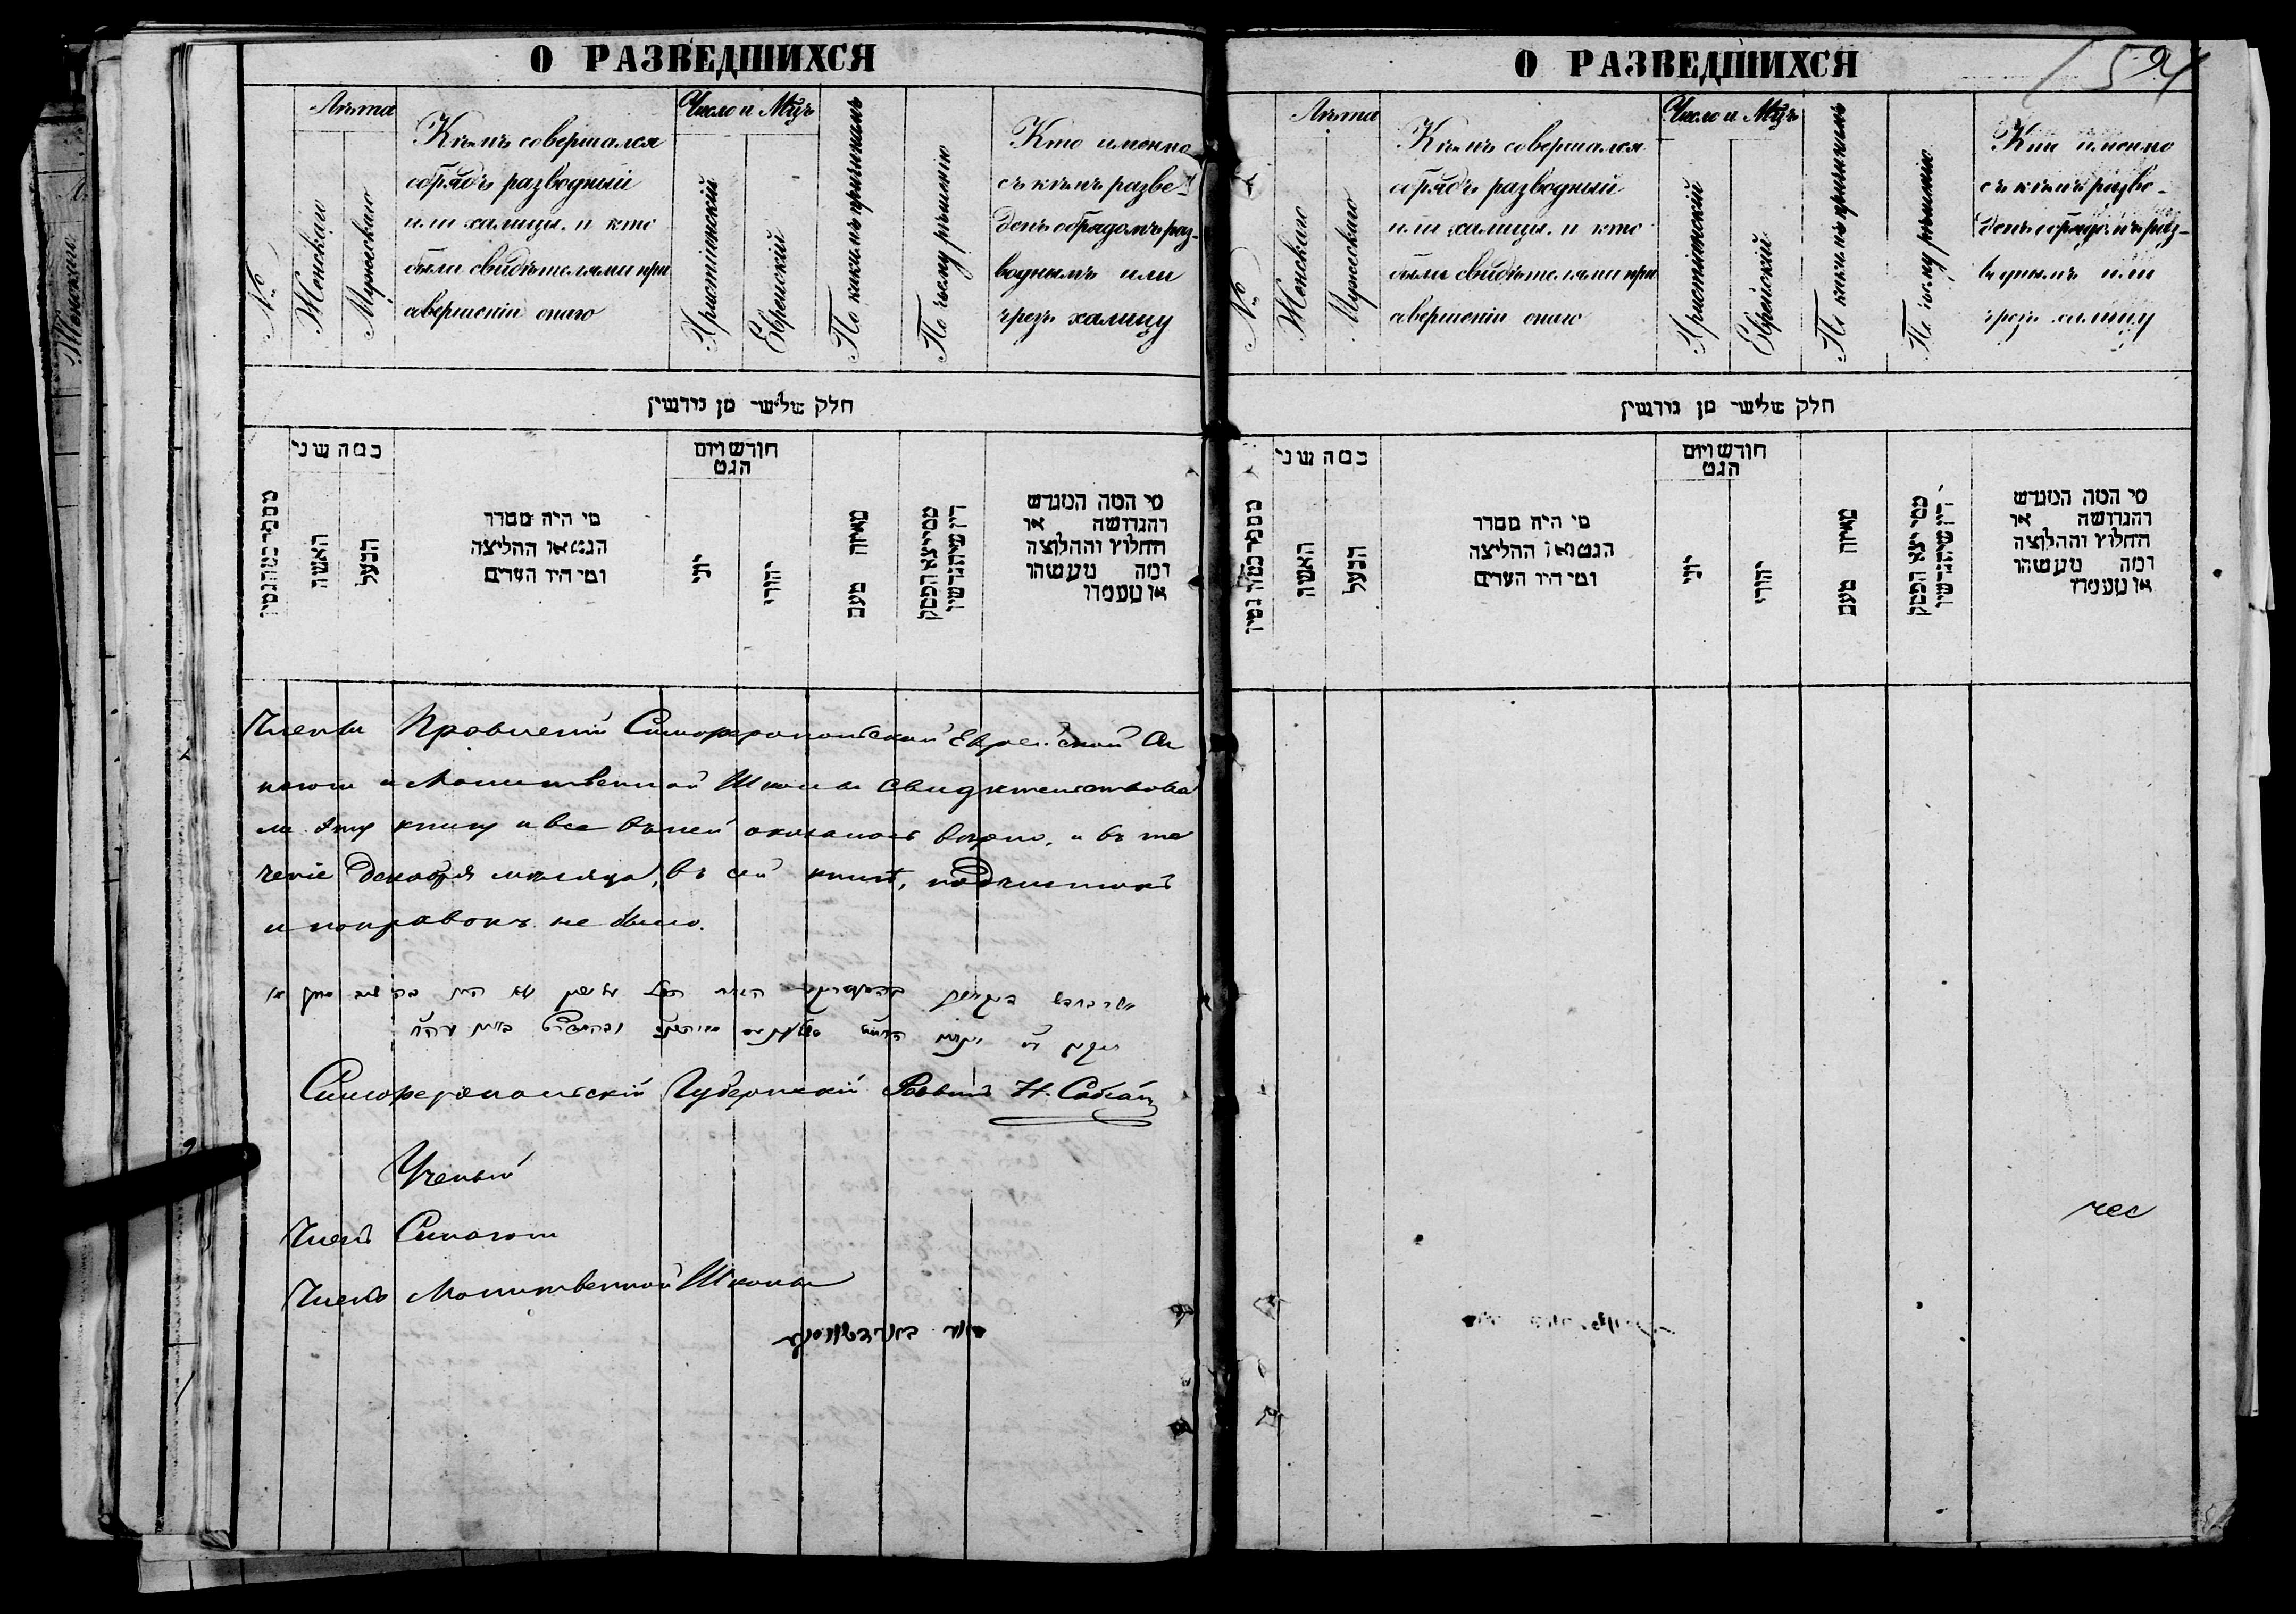 О РАЗВЕДШИХСЯ
№
Лѣта
Женскаго
Мужескаго
Кѣмъ совершался
обрядъ разводный
или халицы, и кто
были свидѣтелями при
совершеніи онаго
Число и Мѣцъ
Христіянскій
Еврейскій
По какимъ причинамъ
По чьему рѣшенію
Кто именно
съ кѣмъ разве-
денъ обрядомъ раз-
воднымъ или
чрезъ халицу
חלק שלישי מן גירושין
כמה שני
האשה
הבעל
מי היה מסדר
הגט או החליצה
ומי היו העדים
חודש ויום
הגט
יוני
יהודי
מאיזה טעם
ממי יצא הפסק
דין שיתגרשו
מי המה המגרש
והגרושה או
החלוץ והחלוצה
ומה מעשהו
או מעמדו
Члены Правленій Симферопольской Еврейской Си
нагоги и Молитвенной Школы свидѣтельствова
ли эту книгу и все въ ней оказалось вѣрно, и въ те
ченіе Декабря мѣсяца, въ сей книгѣ, подчистокъ
и поправокъ не было.
Симферопольскій Губернскій Раввинъ Н.
Ученый
Членъ Синагоги
Членъ Молитвенной Школы
О РАЗВЕДШИХСЯ
№
Лѣта
Женскаго
Мужескаго
Кѣмъ совершался
обрядъ разводный
или халицы, и кто
были свидѣтелями при
совершеніи онаго
Число и Мѣцъ
Христіянскій
Еврейскій
По какимъ причинамъ
По чьему рѣшенію
Кто именно
съ кѣмъ разве-
денъ обрядомъ раз-
воднымъ или
чрезъ халицу
חלק שלישי מן גירושין
כמה שני
האשה
הבעל
מי היה מסדר
הגט או החליצה
ומי היו העדים
חודש ויום
הגט
יוני
יהודי
מאיזה טעם
ממי יצא הפסק
דין שיתגרשו
מי המה המגרש
והגרושה או
החלוץ והחלוצה
ומה מעשהו
או מעמדו